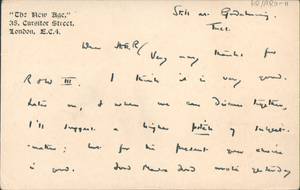 "The New Age,"
38, Cursitor Street,
London, E.C.4.
Still at Godalming.
Tues.
Very many thanks for
R & W III. I think it is very good.
Later on, when we can discuss together,
I'll suggest a higher polish of subject-
matter; but for the present your choice
is good.
yesterday